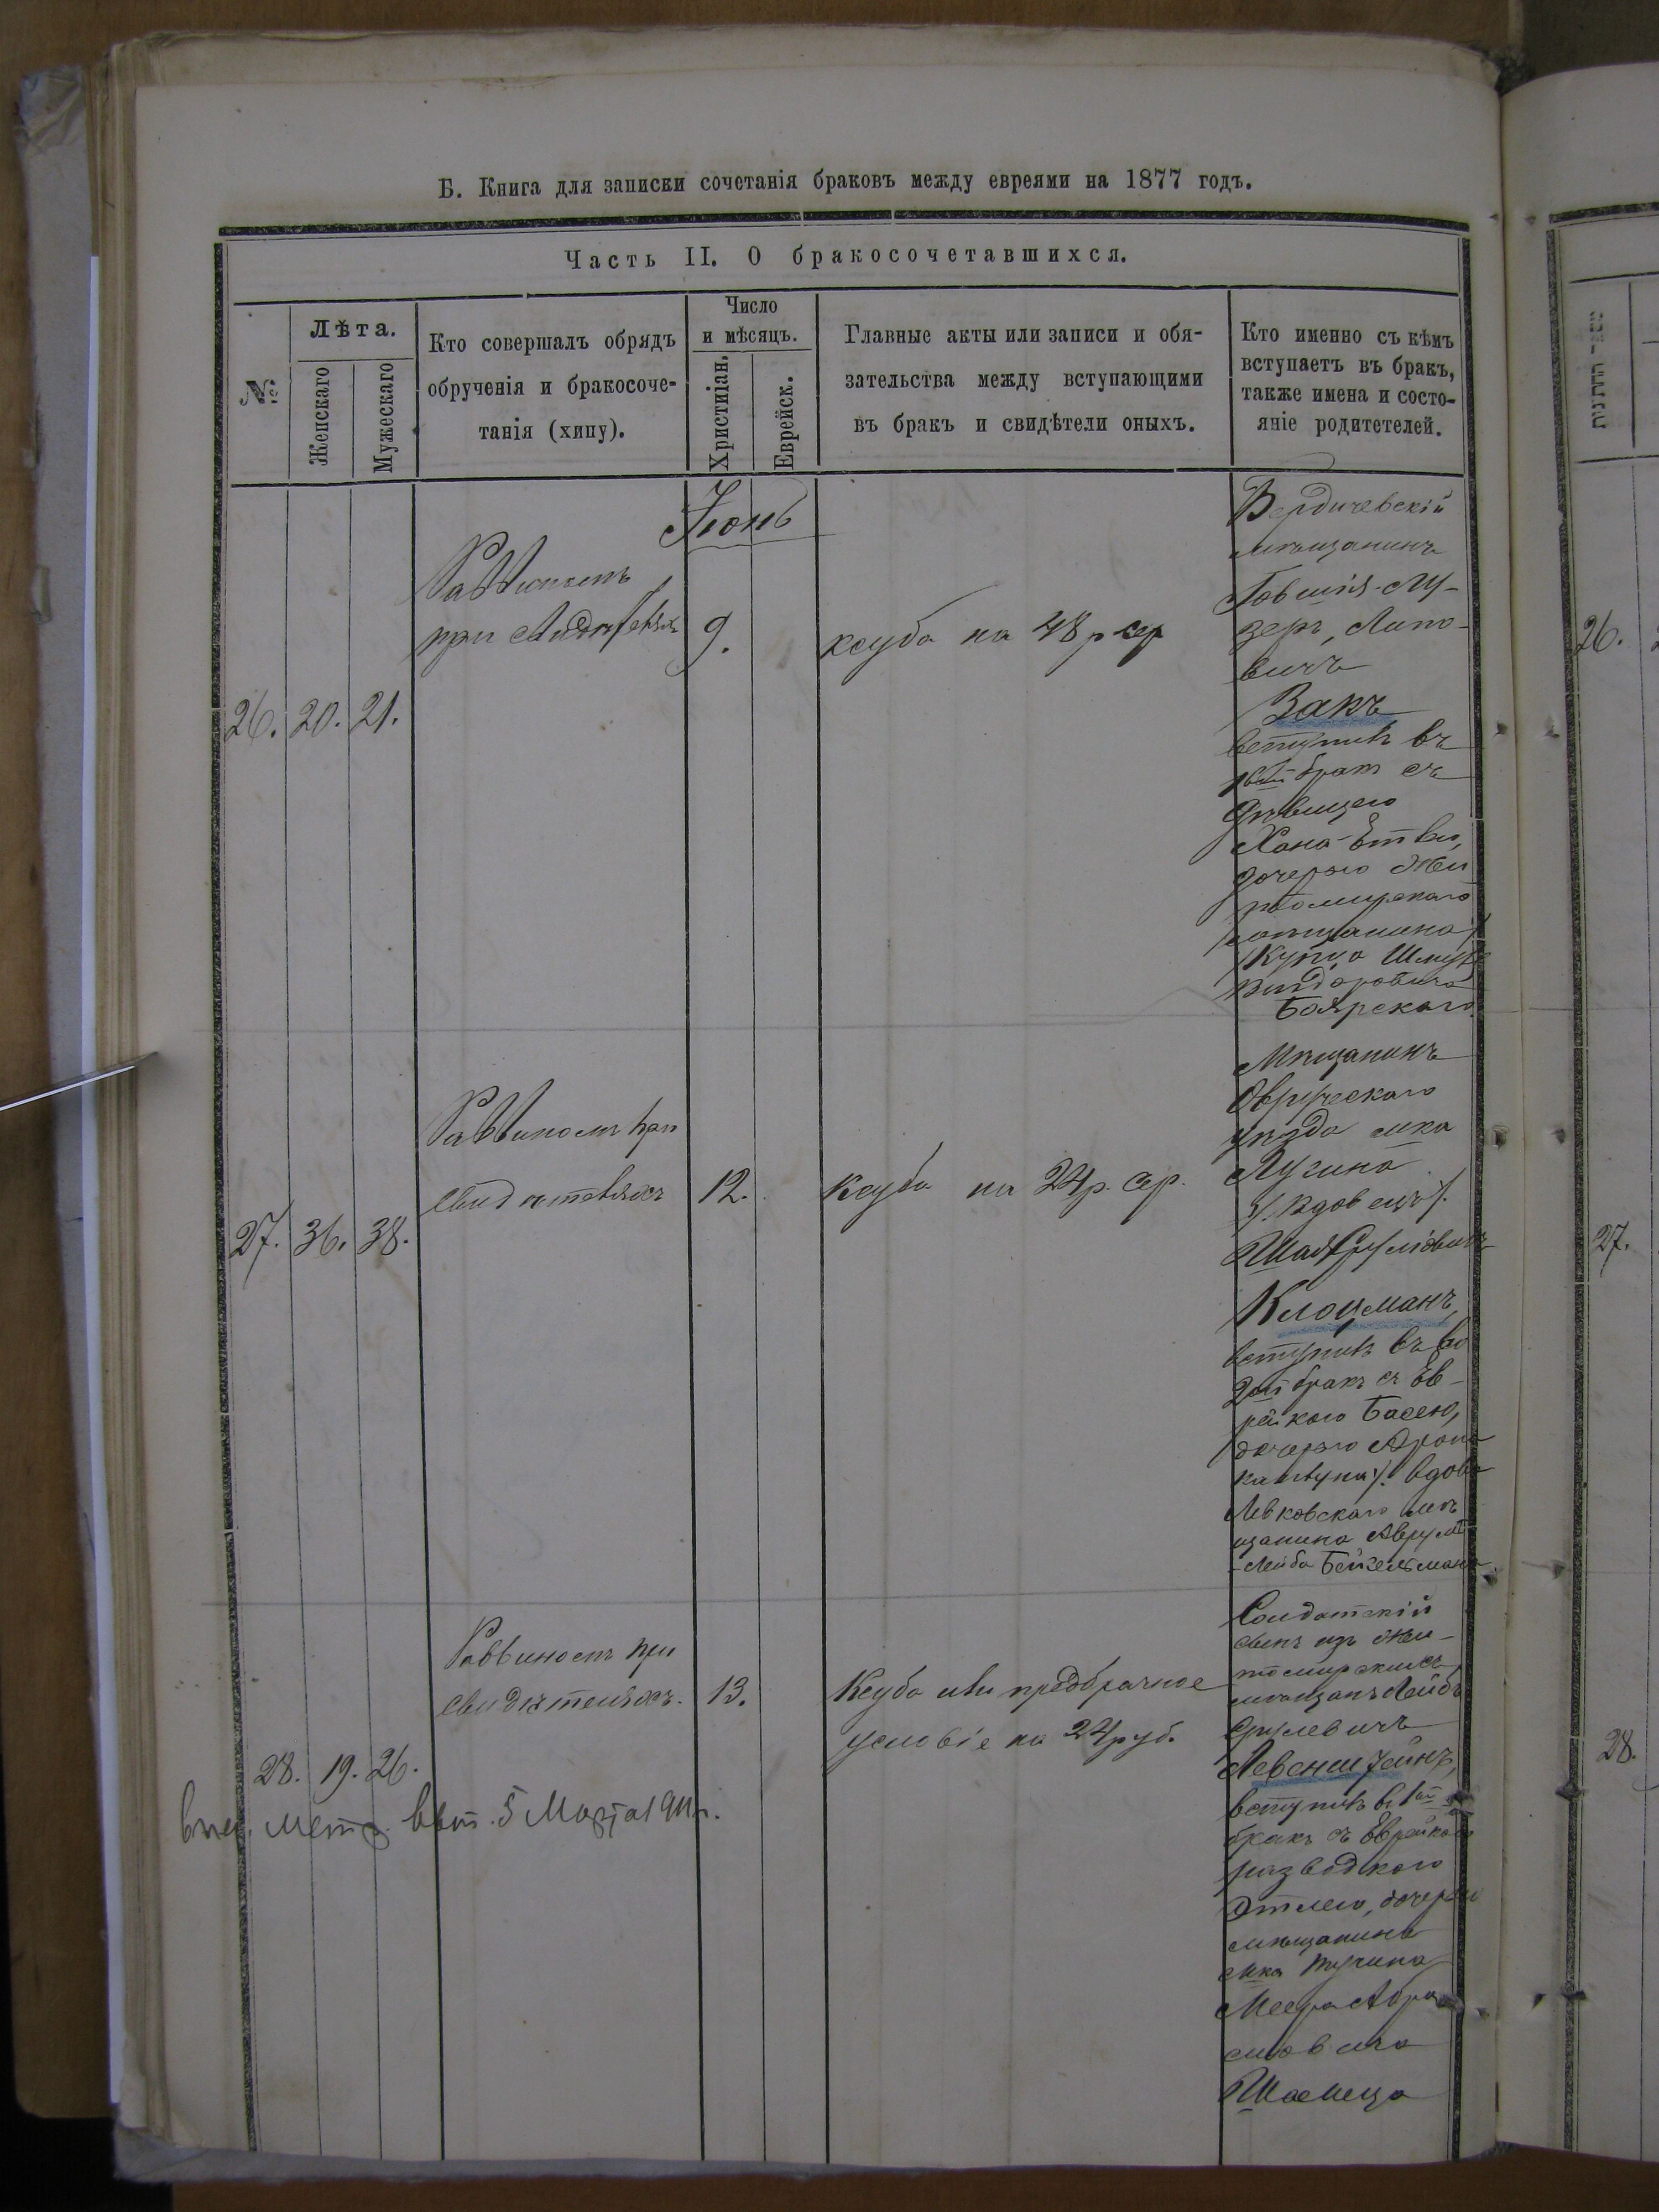 Б. Книга для записки сочетанія браковъ между евреями на 1877 годъ.
Часть II. О бракосочетавшихся.
№
Лѣта.
Женскаго
Мужескаго
Кто совершалъ обрядъ
обрученія и бракосоче-
танія (хипу).
Число
и мѣсяцъ.
Христіан.
Еврейск.
Главные акты или записи и обя-
зательства между вступающими
въ бракъ и свидѣтели оныхъ.
Кто именно съ кѣмъ
вступаетъ въ бракъ,
также имена и состо-
яніе родитетелей.
Іюнь
26. 20. 21.
при
9.
ксуба на 48 р сер
Бердичевскій
мѣщанинъ
Говшія-Лу-
зеръ, Липо-
вичъ
Закъ
вступилъ въ
бракъ съ
дѣвицею
Хана-Етлею,
дочерью Жи
томирскаго
мѣщанина
купца Шмуля
Боярскаго
27. 36. 38.
Раввиномъ при
свидѣтеляхъ
12.
Ксуба на 24 р. сер.
Мѣщанинъ
Овручскаго
уѣзда мка
Лугина
/. вдовецъ /.
Шая Сруліовичъ
Клоцманъ,
вступилъ въ во
2ой бракъ съ Ев-
рейкою Басею,
дочерью Арона
/. вдова
Левковскаго мѣ
щанина Аврумъ
-Лейба Бейзельмана
28. 19. 26.
Раввиномъ при
свидѣтеляхъ.
13.
Ксуба или предбрачное
условіе на 24 руб.
Солдатскій
сынъ изъ Жи-
томирскихъ
мѣщанъ Лейбъ
Срулевичъ
Левенштейнъ,
вступилъ въ 1ый
бракъ съ Еврейкою
разводкою
Этлею, дочерью
мѣщанина
мка Тучина
Меера Абра
мовича
Шаеица
мет. 5 Марта 1911 г.
26.
27.
28.